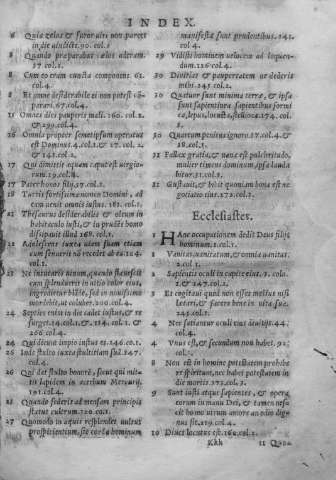 INDEX.
6 Quia zelus & furor viri non parcet
in die vindictæ. 90. col. 1
8 Quando præparabat cælos aderam.
37. col. 1.
8 Cum eo eram cuncta componens. 61.
col. 4.
8 Et omne desiderabile ei non potest com-
parari. 67. col. 4.
15 Omnes dies pauperis mali. 260. col. 2
& 299. col. 4.
16 Omnia propter semetipsum operatus
est Dominus. 4. col. 1. & 17. col. 2
& 141. col. 2.
17 Qui dimittit aquam caput est iurgio-
rum. 29. col. 4.
17 Pater honor filij. 37. col. 1.
18 Turris fortissima nomen Domini, ad
eam
21 Thesaurus desiderabilis & oleum in
habitaculo iusti, & imprudens homo
dissipabit illud. 168. col. 1.
22 Adolescens iuxta viam suam etiam
cum senuerit nõ recedet ab ea. 114.
col. 1.
23 Ne intuearis vinum, quando flauescit
cum splenduerit in vitro color eius,
ingreditur blandè, sed in nouissimo
mordebit, ut coluber. 200. col. 4.
24 Septies enim in die cadet iustus, & re
surget. 14. col. 1. & 114. col. 1. &
266. col. 4.
24 Qui dicunt impio iustus es. 146. c. 1.
26 Inde stulto iuxta stultitiam suã. 247.
col. 4.
26 Qui dat stulto honorẽ, sicut qui mit-
tit lapidem in aceruum Mercurij.
191. col. 4.
23 Quando sederis ad mensam principis
statut cultrum. 200. col. 1.
27 Quomodo in aquis resplendet vultus
prospicientium, sic corda hominum
manifesta sunt prudentibus. 241.
col. 4.
29 Vidisti hominem velocem ad loquen-
dum. 126. col. 4.
30 Diuitias & paupertatem ne dederis
mihi. 245. col. 2.
30 Quatuor sunt minima terræ, & ipsa
sunt sapientiora sapientibus formi
ca, lepus, locusta, stellio. 174. col.
1.
30 Quartum penitus ignoro. 17. col. 4. &
18. col. 1.
31 Fallax gratia, & vana est pulchritudo,
mulier timens dominum, ipsa lauda
bitur. 31. col. 1.
31 Gustauit, & vidit quoniam bona est ne
gociatio eius. 272. col. 1.
Ecclesiastes.
1 Hanc occupationem dedit Deus filijs
hominum. 1. col. 1.
1 Vanitas vanitatum, & omnia vanitas.
2. col. 1.
2 Sapientis oculi in capite eius. 7. colu.
1 & 247. col. 1.
3 Et cogitaui quod non esset melius nisi
lætari, & facere bene in vita sua.
245. col. 1.
4 Nec satiantur oculi eius diuitijs. 44.
col. 4.
4 Vnus est, & secundum non habet. 92.
col. 1.
8 Non est in hominis potestate prohibe
re spiritum, nec habet potestatem in
die mortis. 272. col. 3.
9 Sunt iusti atque sapientes, & opera
eorum in manu Dei, & tamen nesci
cit homo utrum amore an odio dig-
nus sit. 219. col. 1.
10 Diues locutus est. 169. col. 1
Kkk
11 Quia